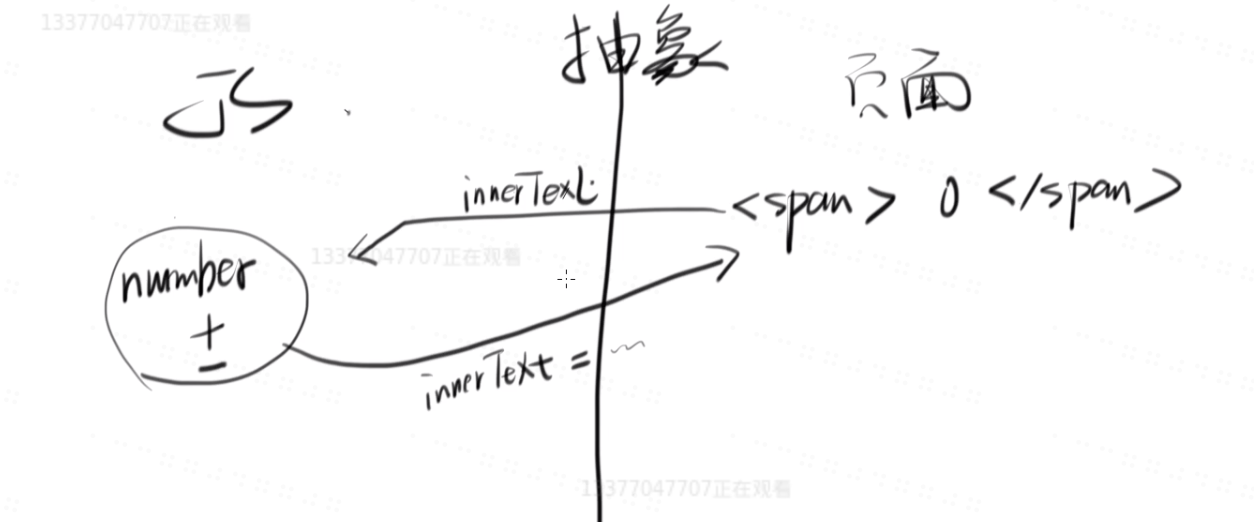 13377047707正在观看
抽象
JS
页面
innerText
<span> 0 </span>
13377047707正在观看
number
+
-
innerText = ...
13377047707正在观看